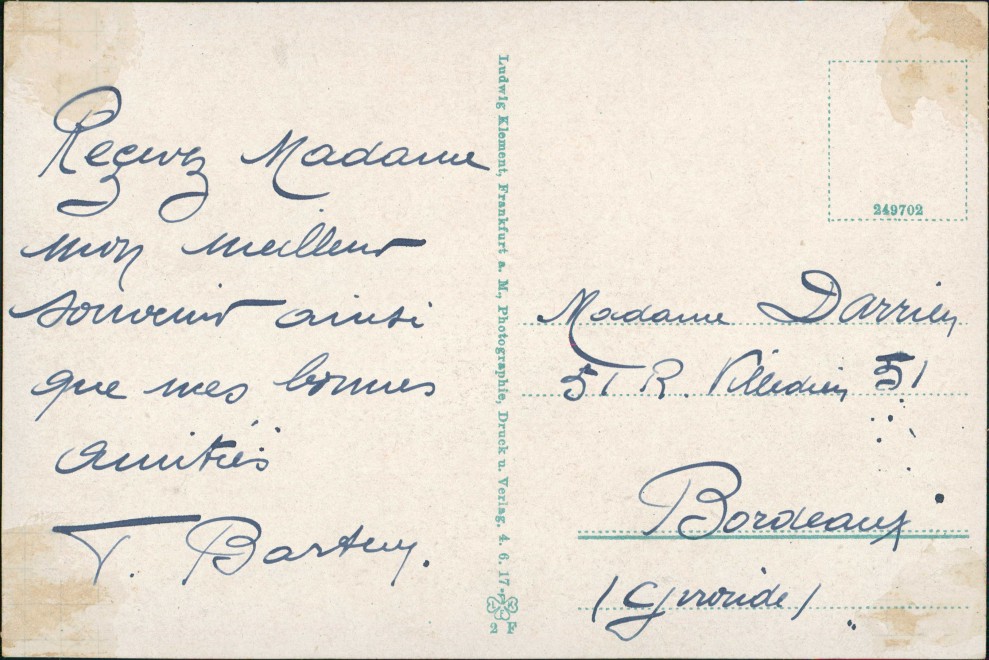 Reçevez Madame
mon meilleur
souvenir ainsi
que mes bonnes
amitiés
T. Barthey.
Ludwig Klement, Frankfurt a. M., Photographie, Druck u. Verlag. 4. 6. 17
2 F
249702
Madame Darrieu
51 R. Villedieu 51
Bordeaux
(Gironde)